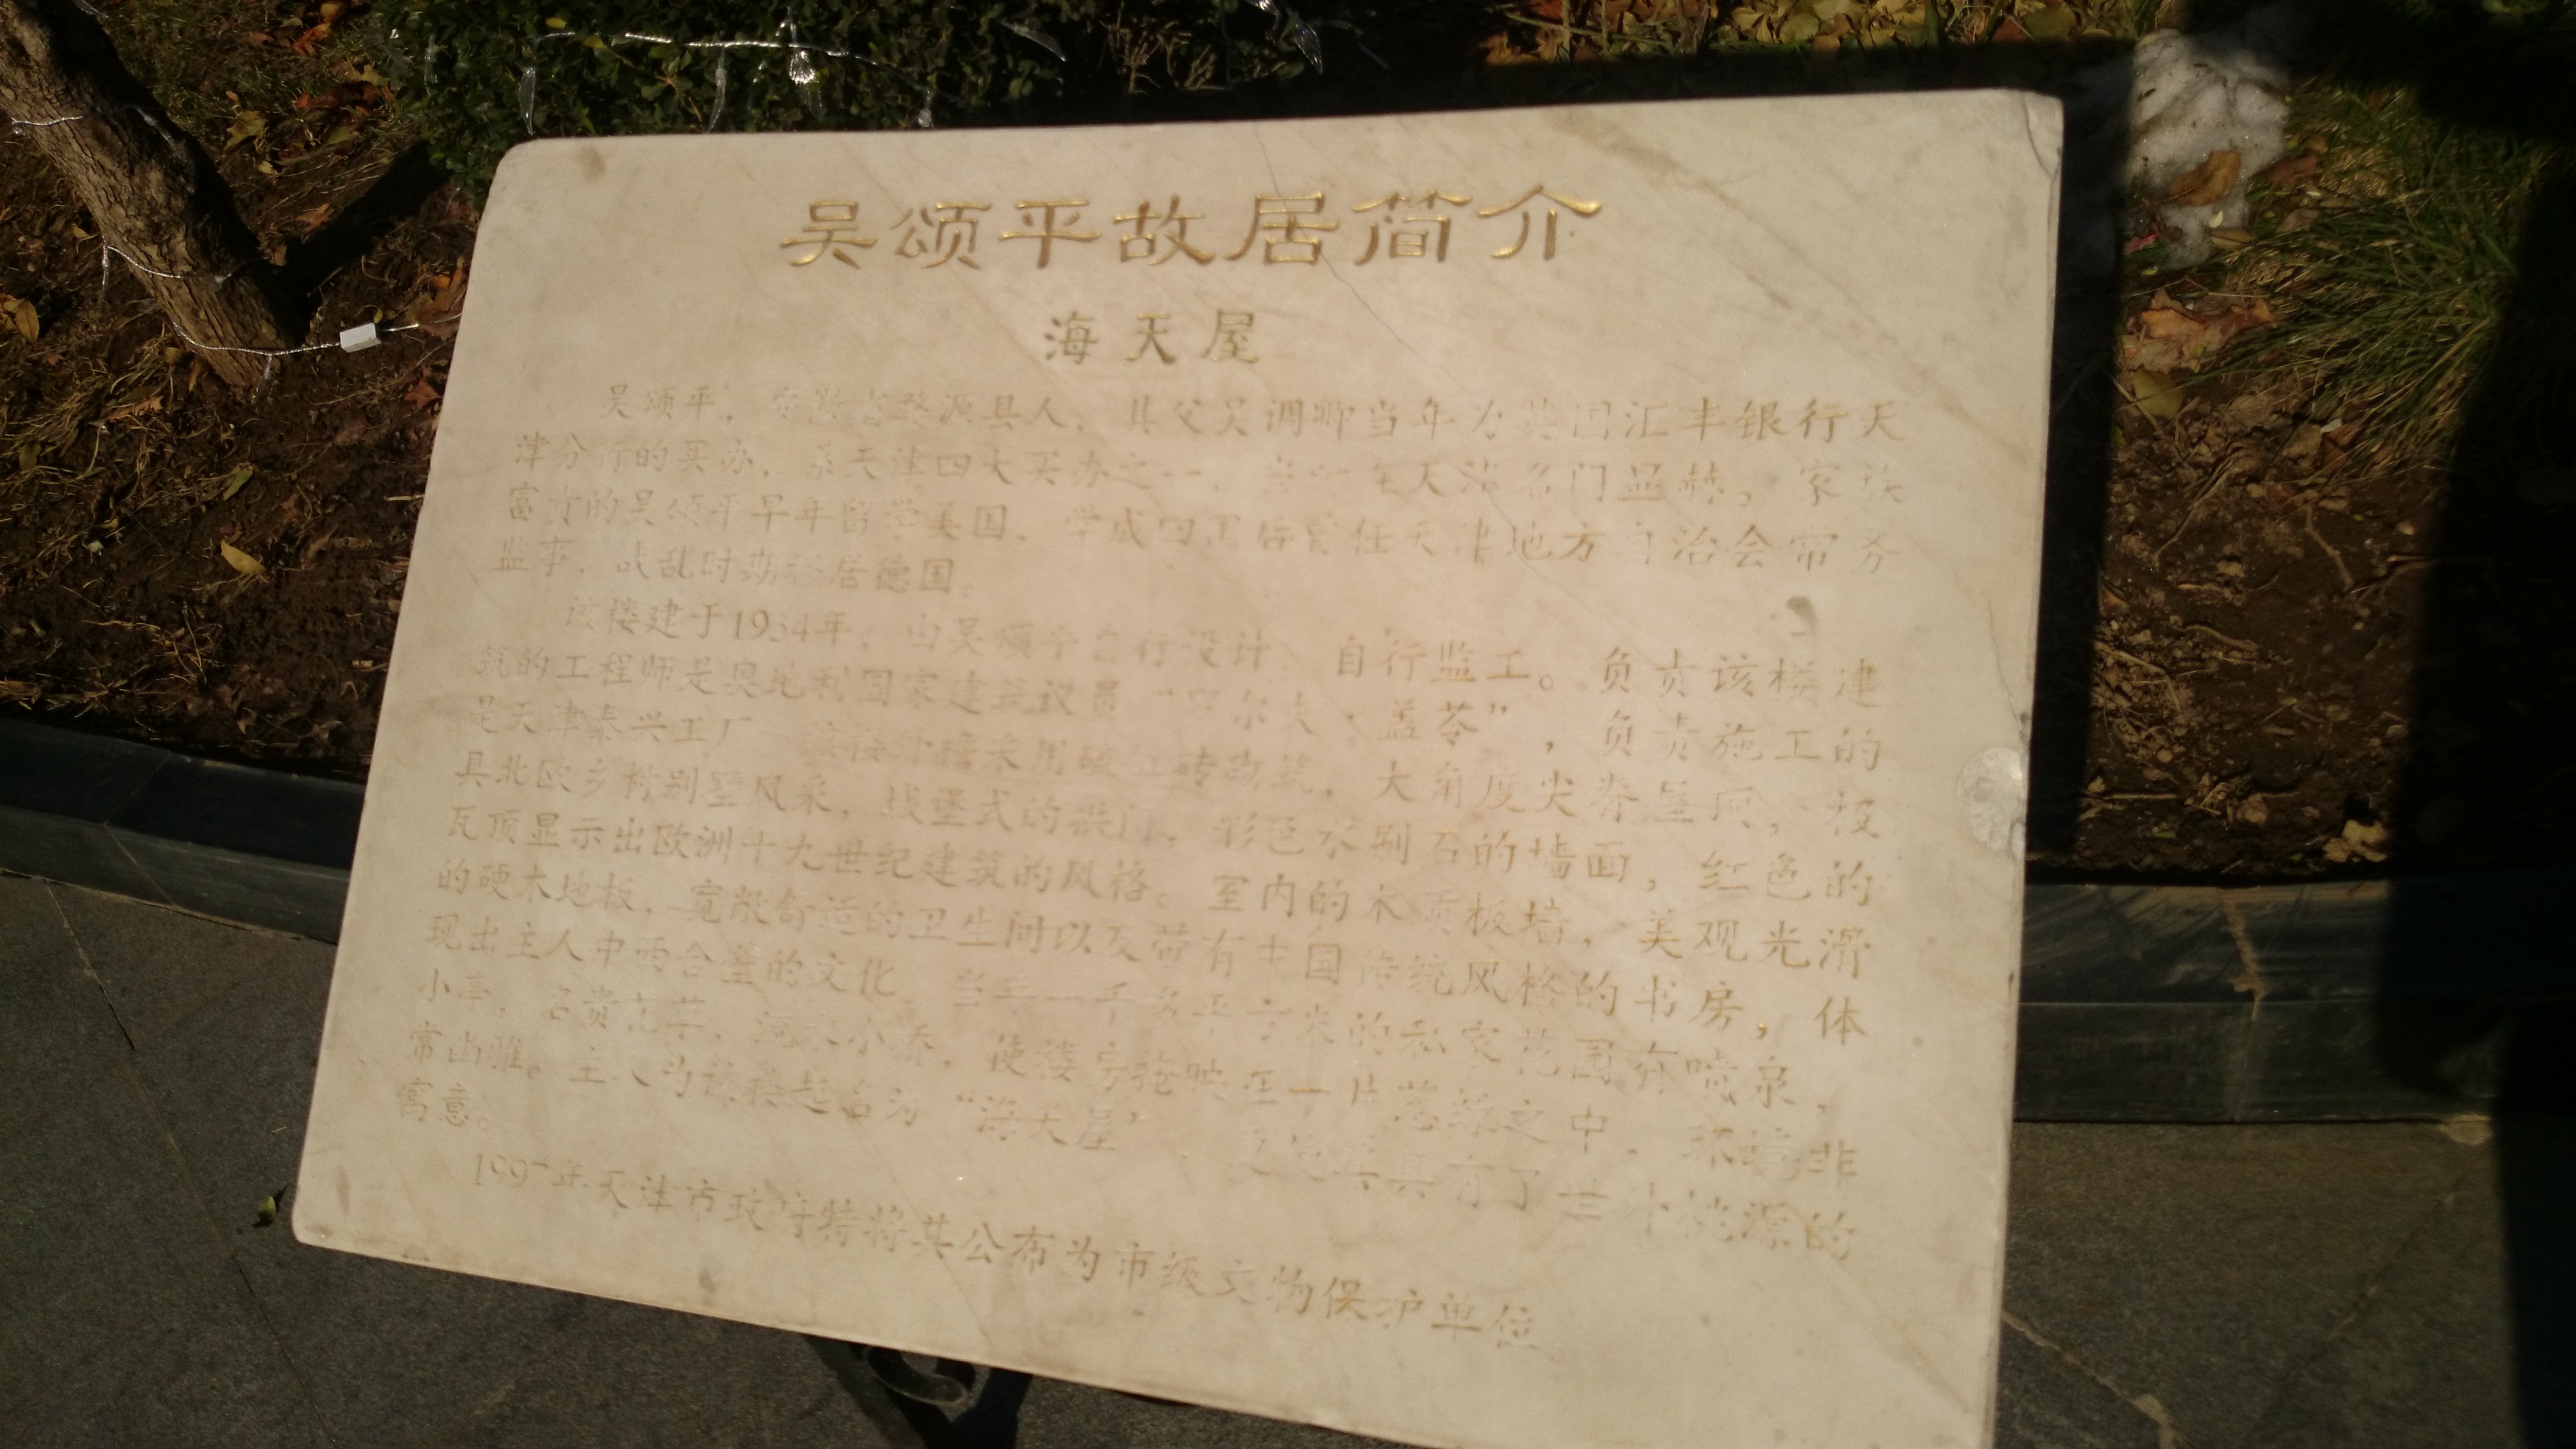 吴颂平故居简介
海天屋
吴颂平，安徽省婺源县人，其父吴调卿当年为英国汇丰银行天
津分行的买办，系天津四大买办之一，当年在天津名门显赫，家族
富有的吴颂平早年留学美国，学成回国后曾任天津地方自治会常务
监事，战乱时期移居德国。
该楼建于1934年，由吴颂平自行设计，自行监工。负责该楼建
筑的工程师是奥地利国家建筑议员“ 尔夫·盖苓”，负责施工的
是天津泰兴工厂 该楼外墙采用硫缸砖砌筑，大角度尖脊屋顶，极
具北欧乡村别墅风采，城堡式的拱门，彩色水刷石的墙面，红色的
瓦顶显示出欧洲十九世纪建筑的风格。室内的木质板墙，美观光滑
的硬木地板，宽敞舒适的卫生间以及带有中国传统风格的书房，体
现出主人中西合璧的文化。当年一千多平方米的私家花园有喷泉，
小亭，名贵花草，流水小桥，使楼房掩映在一片葱绿之中，环境非
常幽雅。主人为该楼起名为“海天屋” 具有了世外桃源的
寓意。
1997年天津市政府特将其公布为市级文物保护单位